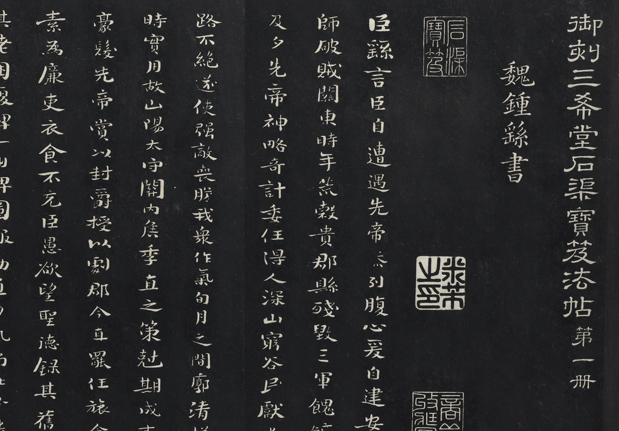 御刻三希堂石渠寶笈法帖第一冊
魏鍾繇書
石渠寶笈
臣繇言臣自遭遇先帝忝列腹心爰自建安
師破賊關東時年荒穀貴郡縣殘毀三軍餽
及夕先帝神略奇計委任得人深山窮谷民獻
路不絕遂使強敵喪膽我衆作氣旬月之間廓清
時實用故山陽太守關內侯季直之策剋期成
豪髮先帝賞以封爵授以劇郡今直罷任旅
素為廉吏衣食不充臣愚欲望聖德錄其舊
其老困復俾一